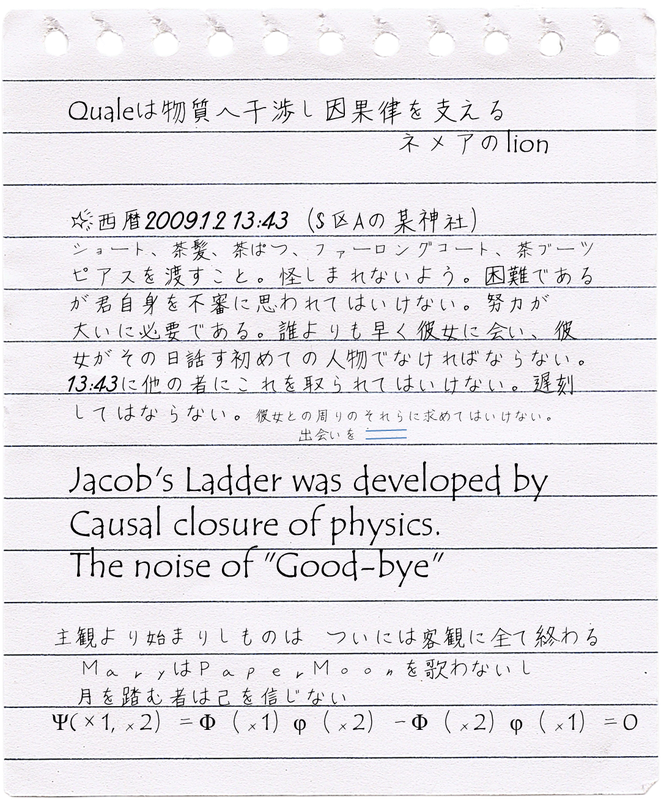 Qualeは物質へ干渉し因果律を支える
ネメアのlion
☆西暦2009.1.2 13:43 (S区Aの某神社)
ショート、茶髪、茶ぱつ、ファーロングコート、茶ブーツ
ピアスを渡すこと。怪しまれないよう。困難である
が君自身を不審に思われてはいけない。努力が
大いに必要である。誰よりも早く彼女に会い、彼
女がその日話す初めての人物でなければならない。
13:43に他の者にこれを取られてはいけない。遅刻
してはならない。彼女との周りのそれらに求めてはいけない。
出会いを
Jacob's Ladder was developed by
Causal closure of physics.
The noise of "Good-bye"
主観より始まりしものは ついには客観に全て終わる
MaryはPaperMoonを歌わないし
月を踏む者は己を信じない
Ψ(×1, ×2) =Φ (×1) φ (×2) -Φ (×2) φ (×1) =0